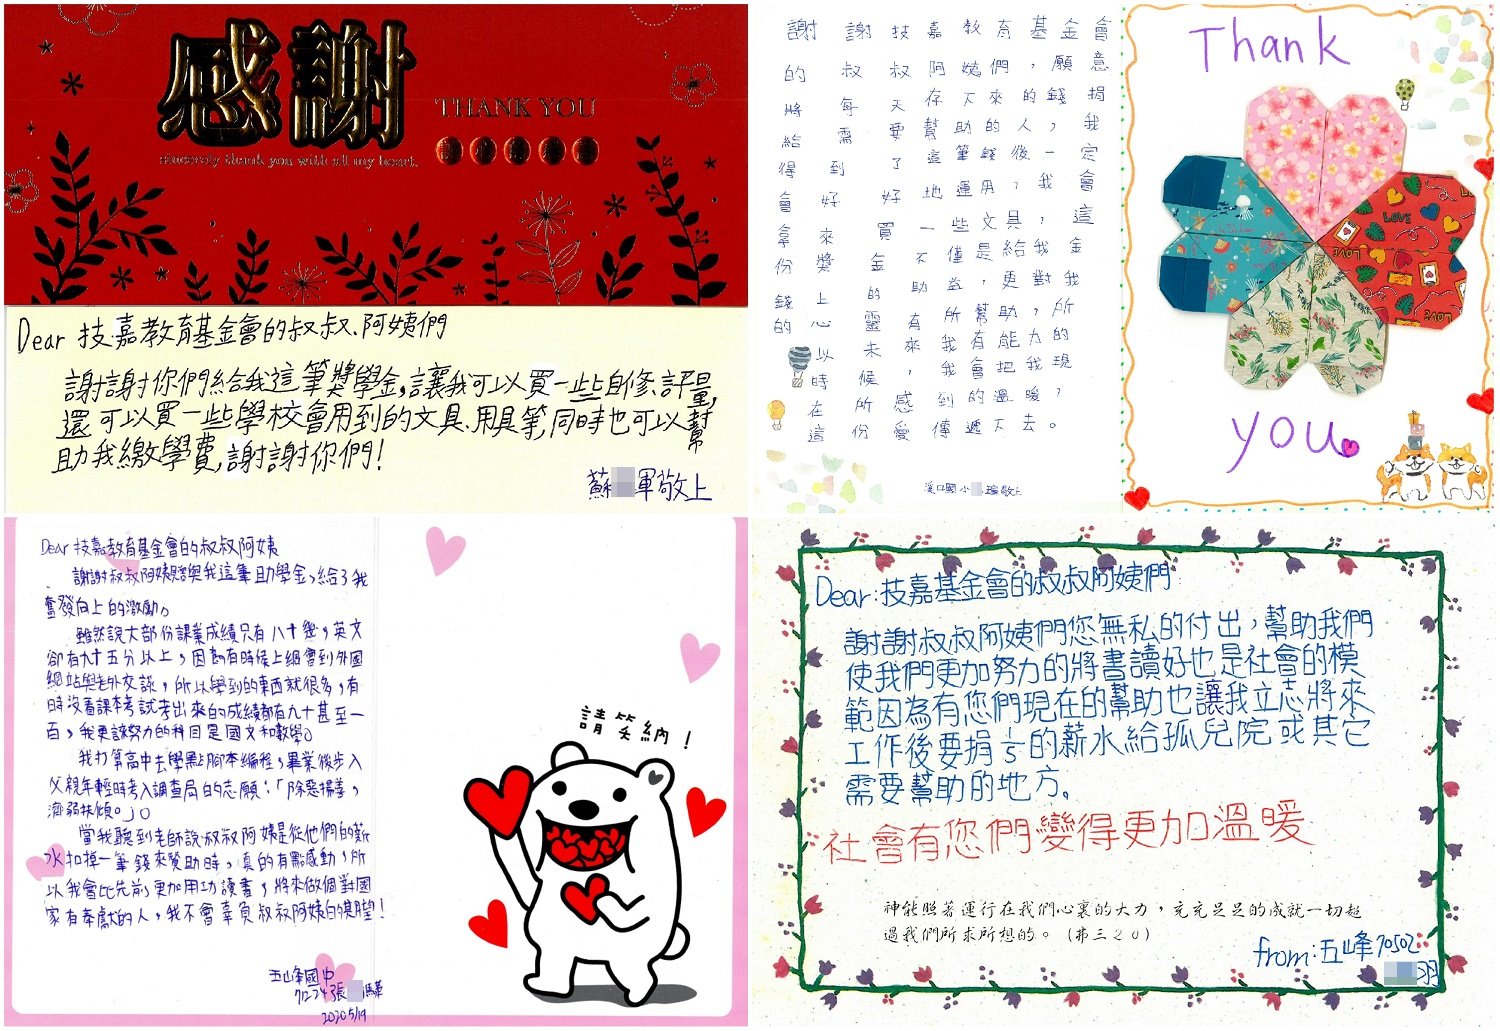 感謝
THANK YOU
sincerely thank you with all my heart.
Dear 技嘉教育基金會的叔叔、阿姨們
謝謝你們給我這筆獎學金,讓我可以買一些自修、評量,
還可以買一些學校會用到的文具、用具等,同時也可以幫
助我繳學費,謝謝你們!
蘇 軍敬上
謝謝技嘉教育基金會
的叔叔阿姨們,願意
將每天存下來的錢捐
給需要幫助的人,我
得到了這筆錢後一定
會好好地運用,我會
拿來買一些文具,這
份獎金不僅是給我金
錢上的助益,更對我
的心靈有所幫助,所
以未來我有能力的
時候,我會把我現
在所感到的溫暖,
這份愛傳遞下去。
溪口國小 瑄敬上
Thank
LOVE
LOVE
LOVE
you
Dear 技嘉教育基金會的叔叔阿姨
謝謝叔叔阿姨贈與我這筆助學金,給了我
奮發向上的激勵。
雖然說大部份課業成績只有八十幾,英文
卻有九十五分以上,因為有時候上網會到外國
網站與老外交談,所以學到的東西就很多,有
時沒看課本考試考出來的成績都有九十甚至一
百,我更該努力的科目是國文和數學。
我打算高中去學點腳本編程,畢業後步入
父親年輕時考入調查局的志願:「除惡揚善,
濟弱扶傾。」。
當我聽到老師說叔叔阿姨是從他們的薪
水扣掉一筆錢來贊助時,真的有點感動,所
以我會比先前更加用功讀書,將來做個對國
家有奉獻的人,我不會辜負叔叔阿姨的期望!
五峰國中
71224 張
2020 5/19
請笑納!
Dear:技嘉基金會的叔叔阿姨們
謝謝叔叔阿姨們您無私的付出,幫助我們
使我們更加努力的將書讀好也是社會的模
範因為有您們現在的幫助也讓我立志將來
工作後要捐 的薪水給孤兒院或其它
需要幫助的地方。
社會有您們變得更加溫暖
神能照著運行在我們心裏的大力,充充足足的成就一切超
過我們所求所想的。(弗三20)
from:五峰70502
羽